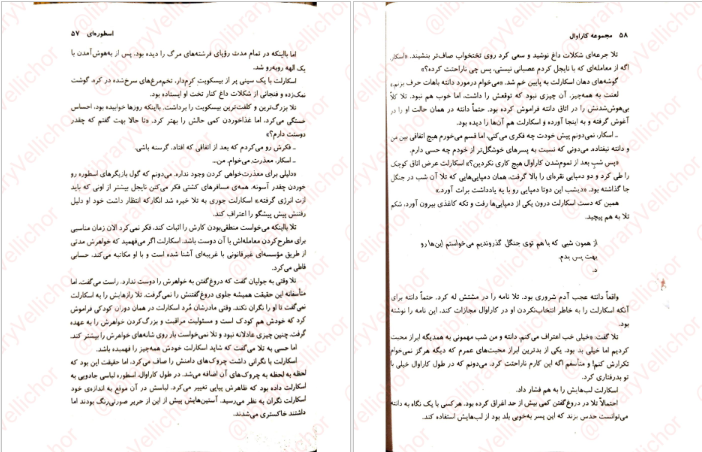 اسطوره‌ای ۵۷
اما باینکه در تمام مدت رؤیای فرشته‌های مرگ را دیده بود، پس از به‌هوش‌آمدن با
یک الهه روبه‌رو شد.
اسکارلت با یک سینی پر از بیسکویت کرم‌دار، تخم‌مرغ‌های سرخ‌شده در کره، گوشت
نمک‌زده و فنجانی از شکلات داغ کنار تخت او ایستاده بود.
تلا بزرگ‌ترین و کلفت‌ترین بیسکویت را برداشت. باینکه روزها خوابیده بود، احساس
خستگی می‌کرد، اما غذاخوردن کمی حالش را بهتر کرد. «تا حالا بهت گفتم که چقدر
دوستت دارم؟»
ـ فکرش رو می‌کردم که بعد از اتفاقی که افتاد، گرسنه باشی.
ـ اسکار، معذرت می‌خوام. من...
«دلیلی برای معذرت‌خواهی کردن وجود نداره. می‌دونم که گول بازیگرهای اسطوره رو
خوردن چقدر آسونه. همه‌ی مسافرهای کشتی فکر می‌کنن نایجل بیشتر از اونی که باید
ازت انرژی گرفته.» اسکارلت جوری به تلا خیره شد انگارکه انتظار داشت خود او دلیل
رفتنش پیش پیشگو را اعتراف کند.
تلا باینکه می‌خواست منطقی‌بودن کارش را اثبات کند، فکر نمی‌کرد الان زمان مناسبی
برای مطرح‌کردن معامله‌اش با آن دوست باشد. اسکارلت اگر می‌فهمید که خواهرش مدتی
از طریق مؤسسه‌ای غیرقانونی با غریبه‌ای آشنا شده است و با او مکاتبه می‌کند، حسابی
قاطی می‌کرد.
تلا وقتی به جولیان گفت که دروغ‌گفتن به خواهرش را دوست ندارد، راست می‌گفت، اما
متأسفانه این حقیقت همیشه جلوی دروغ‌گفتنش را نمی‌گرفت. تلا رازهایش را به اسکارلت
نمی‌گفت تا او را نگران نکند. وقتی مادرشان مُرد اسکارلت در همان دوران کودکی فراموش
کرد که خودش هم کودک است و مسئولیت مراقبت و بزرگ‌کردن خواهرش را به عهده
گرفت. چنین چیزی عادلانه نبود و تلا نمی‌خواست بار روی شانه‌های خواهرش را بیشتر کند.
اما حسی به تلا می‌گفت که شاید اسکارلت خودش همه‌چیز را فهمیده باشد.
اسکارلت با نگرانی داشت چروک‌های دامنش را صاف می‌کرد، اما حقیقت این بود که
لحظه به لحظه به چروک‌های آن اضافه می‌شد. در طول کاراوال، اسطوره لباسی جادویی به
اسکارلت داده بود که ظاهرش پیاپی تغییر می‌کرد. لباسش در آن موقع به اندازه‌ی خود
اسکارلت نگران به نظر می‌رسید. آستین‌هایش پیش از این از حریر صورتی‌رنگ بودند اما
داشتند خاکستری می‌شدند.
۵۸ مجموعه کاراوال
تلا جرعه‌ای شکلات داغ نوشید و سعی کرد روی تختخواب صاف‌تر بنشیند. «اسکار
اگه از معامله‌ای که با نایجل کردم عصبانی نیستی، پس چی ناراحتت کرده؟»
گوشه‌های دهان اسکارلت به پایین خم شد. «می‌خوام درمورد دانته باهات حرف بزنم.»
لعنت به همه‌چیز. آن چیزی نبود که توقعش را داشت، اما خوب هم نبود. تلا کلاً
بی‌هوش‌شدنش را در اتاق دانته فراموش کرده بود. حتماً دانته در همان حالت او را در
آغوش گرفته و به اینجا آورده و اسکارلت هم آن‌ها را دیده بود.
ـ اسکار، نمی‌دونم پیش خودت چه فکری می‌کنی، اما قسم می‌خورم هیچ اتفاقی بین من
و دانته نیفتاده. می‌دونی که نسبت به پسرهای خوشگل‌تر از خودم چه حسی دارم.
«پس شب بعد از تموم‌شدن کاراوال هیچ کاری نکردین؟» اسکارلت عرض اتاق کوچک
را طی کرد و دو دمپایی نقره‌ای را بالا گرفت، همان دمپایی‌هایی که تلا آن شب در جنگل
جا گذاشته بود. «دیشب این دوتا دمپایی رو با یه یادداشت برات آورد.»
همین که دست اسکارلت درون یکی از دمپایی‌ها رفت و تکه کاغذی بیرون آورد، شکم
تلا به هم پیچید.
از همون شبی که با هم توی جنگل گذروندیم می‌خواستم این‌ها رو
بهت پس بدم.
د.
واقعاً دانته عجب آدم شروری بود. تلا نامه را در مشتش له کرد. حتماً دانته برای
آنکه اسکارلت را به خاطر انتخاب‌نکردن او در کاراوال مجازات کند، این نامه را نوشته
بود.
تلا گفت: «خیلی خب. اعتراف می‌کنم. دانته و من شب مهمونی به همدیگه ابراز محبت
کردیم اما خیلی بد بود. یکی از بدترین ابراز محبت‌های عمرم که دیگه هرگز نمی‌خوام
تکرارش کنم! و متأسفم اگه این کارم ناراحتت کرد. می‌دونم که در طول کاراوال خیلی با
تو بدرفتاری کرد.
اسکارلت لب‌هایش را به هم فشار داد.
احتمالاً تلا در دروغ‌گفتن کمی بیش از حد اغراق کرده بود. هرکسی با یک نگاه به دانته
می‌توانست حدس بزند که این پسر به‌خوبی بلد بود از لب‌هایش استفاده کند.